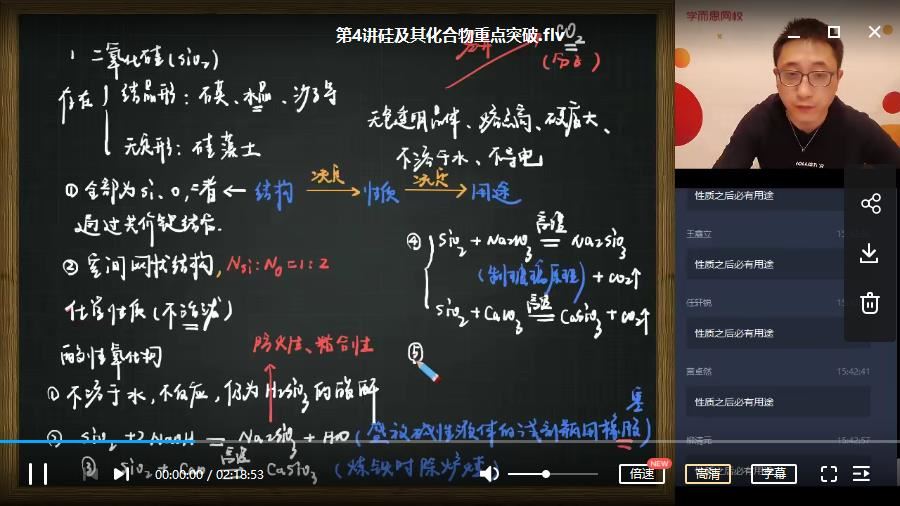 第4讲硅及其化合物重点突破.flv
学而思网校
1. 二氧化硅(SiO2)
CO2
(分子)
存在
结晶形：石英、水晶、沙子等
无定形：硅藻土
无色透明晶体、熔点高、硬度大、
不溶于水、不导电
①全部为Si、O,二者 ← 结构 决定 性质 决定 用途
通过共价键结合.
②空间网状结构, NSi:NO=1:2
④ SiO2 + Na2CO3 高温 Na2SiO3
(制玻璃原理) + CO2↑
SiO2 + CaCO3 高温 CaSiO3 + CO2↑
化学性质(不活泼)
酸性氧化物
防火性、粘合性
⑤
①不溶于水,不反应,仍为H2SiO3的酸酐
② SiO2 + 2NaOH = Na2SiO3 + H2O (盛放碱性液体的试剂瓶用橡胶)
塞
③ SiO2 + CaO 高温 CaSiO3 (炼铁时除炉渣)
性质之后必有用途
王鑫立
性质之后必有用途
任轩锐
性质之后必有用途
15:42:41
性质之后必有用途
15:42:57
性质之后必有用途
00:00:00 / 02:18:53
倍速
NEW
高清
字幕